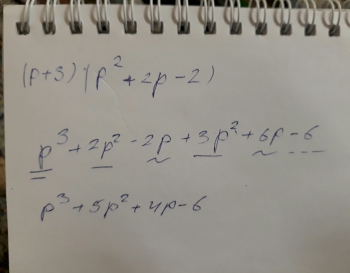 (p+3)·(p²+2p-2)
p³+2p²-2p+3p²+6p-6
p³+5p²+4p-6